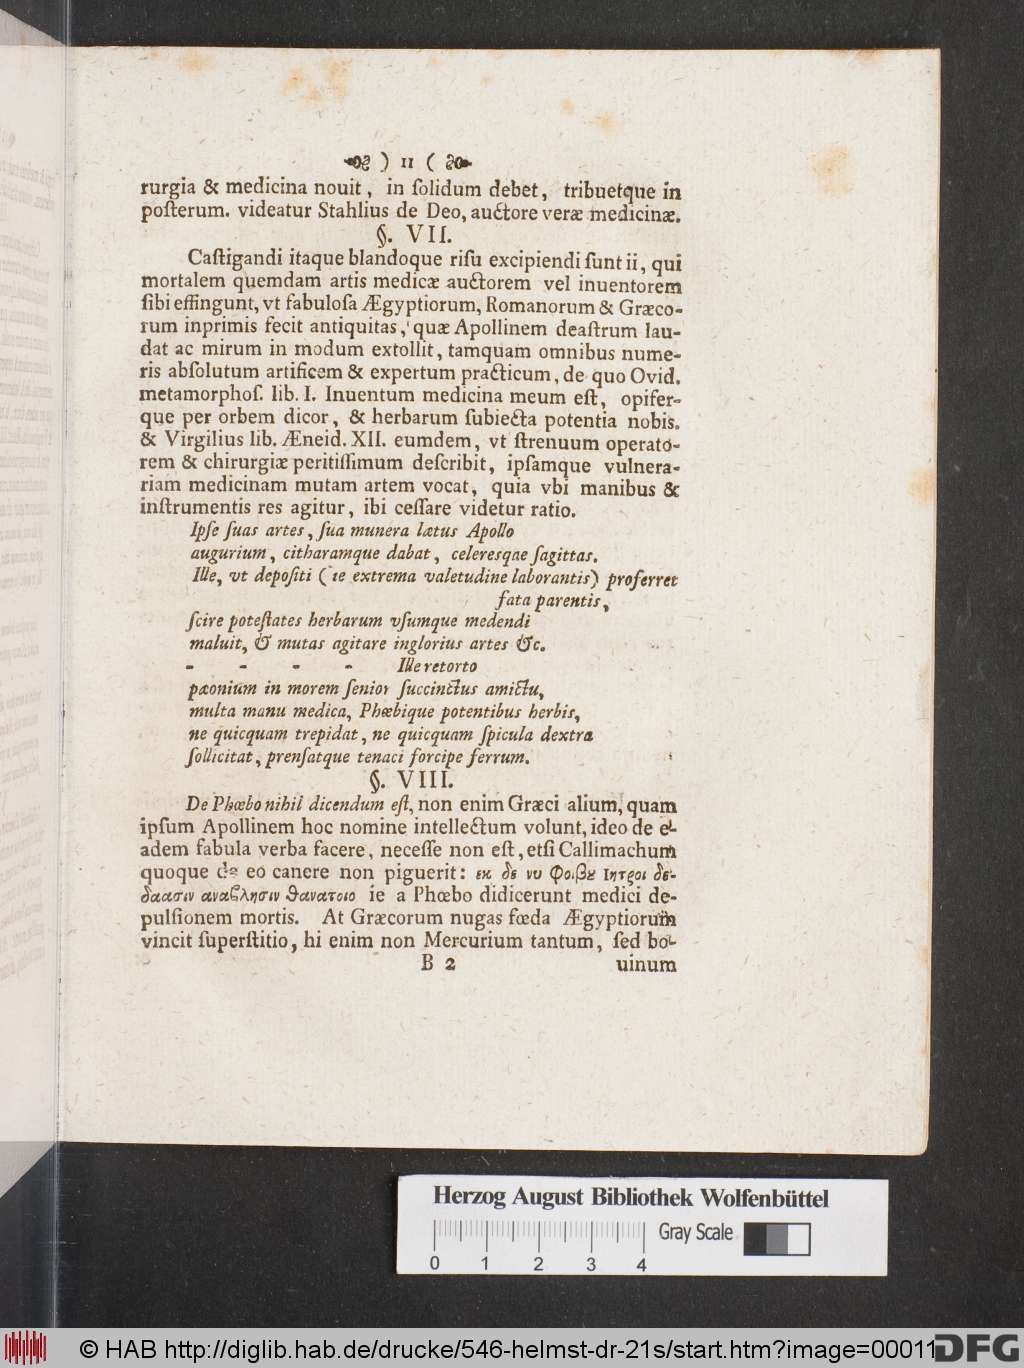 ) 11 (
rurgia & medicina nouit, in ſolidum debet, tribuetque in
poſterum. videatur Stahlius de Deo, auctore veræ medicinæ.
§. VII.
Caſtigandi itaque blandoque riſu excipiendi ſunt ii, qui
mortalem quemdam artis medicæ auctorem vel inuentorem
ſibi effingunt, vt fabuloſa Ægyptiorum, Romanorum & Græco-
rum inprimis fecit antiquitas, quæ Apollinem deaſtrum lau-
dat ac mirum in modum extollit, tamquam omnibus nume-
ris abſolutum artificem & expertum practicum, de quo Ovid.
metamorphoſ. lib. I. Inuentum medicina meum eſt, opifer-
que per orbem dicor, & herbarum ſubiecta potentia nobis.
& Virgilius lib. Æneid. XII. eumdem, vt ſtrenuum operato-
rem & chirurgiæ peritiſſimum deſcribit, ipſamque vulnera-
riam medicinam mutam artem vocat, quia vbi manibus &
inſtrumentis res agitur, ibi ceſſare videtur ratio.
Ipſe ſuas artes, ſua munera lætus Apollo
augurium, citharamque dabat, celeresque ſagittas.
Ille, vt depoſiti (ie extrema valetudine laborantis) proferret
fata parentis,
ſcire poteſtates herbarum vſumque medendi
maluit, & mutas agitare inglorius artes &c.
- - - - Ille retorto
pæonium in morem ſenior ſuccinctus amictu,
multa manu medica, Phœbique potentibus herbis,
ne quicquam trepidat, ne quicquam ſpicula dextra
ſollicitat, prenſatque tenaci forcipe ferrum.
§. VIII.
De Phœbo nihil dicendum eſt, non enim Græci alium, quam
ipſum Apollinem hoc nomine intellectum volunt, ideo de e-
adem fabula verba facere, neceſſe non eſt, etſi Callimachum
quoque de eo canere non piguerit: εκ δε νυ Φοιβȣ Ιητροι δε-
δαασιν αναβλησιν θανατοιο ie a Phœbo didicerunt medici de-
pulſionem mortis. At Græcorum nugas fœda Ægyptiorum
vincit ſuperſtitio, hi enim non Mercurium tantum, ſed bo-
B 2 uinum
Herzog August Bibliothek Wolfenbüttel
Gray Scale
0 1 2 3 4
© HAB http://diglib.hab.de/drucke/546-helmst-dr-21s/start.htm?image=00011
DFG